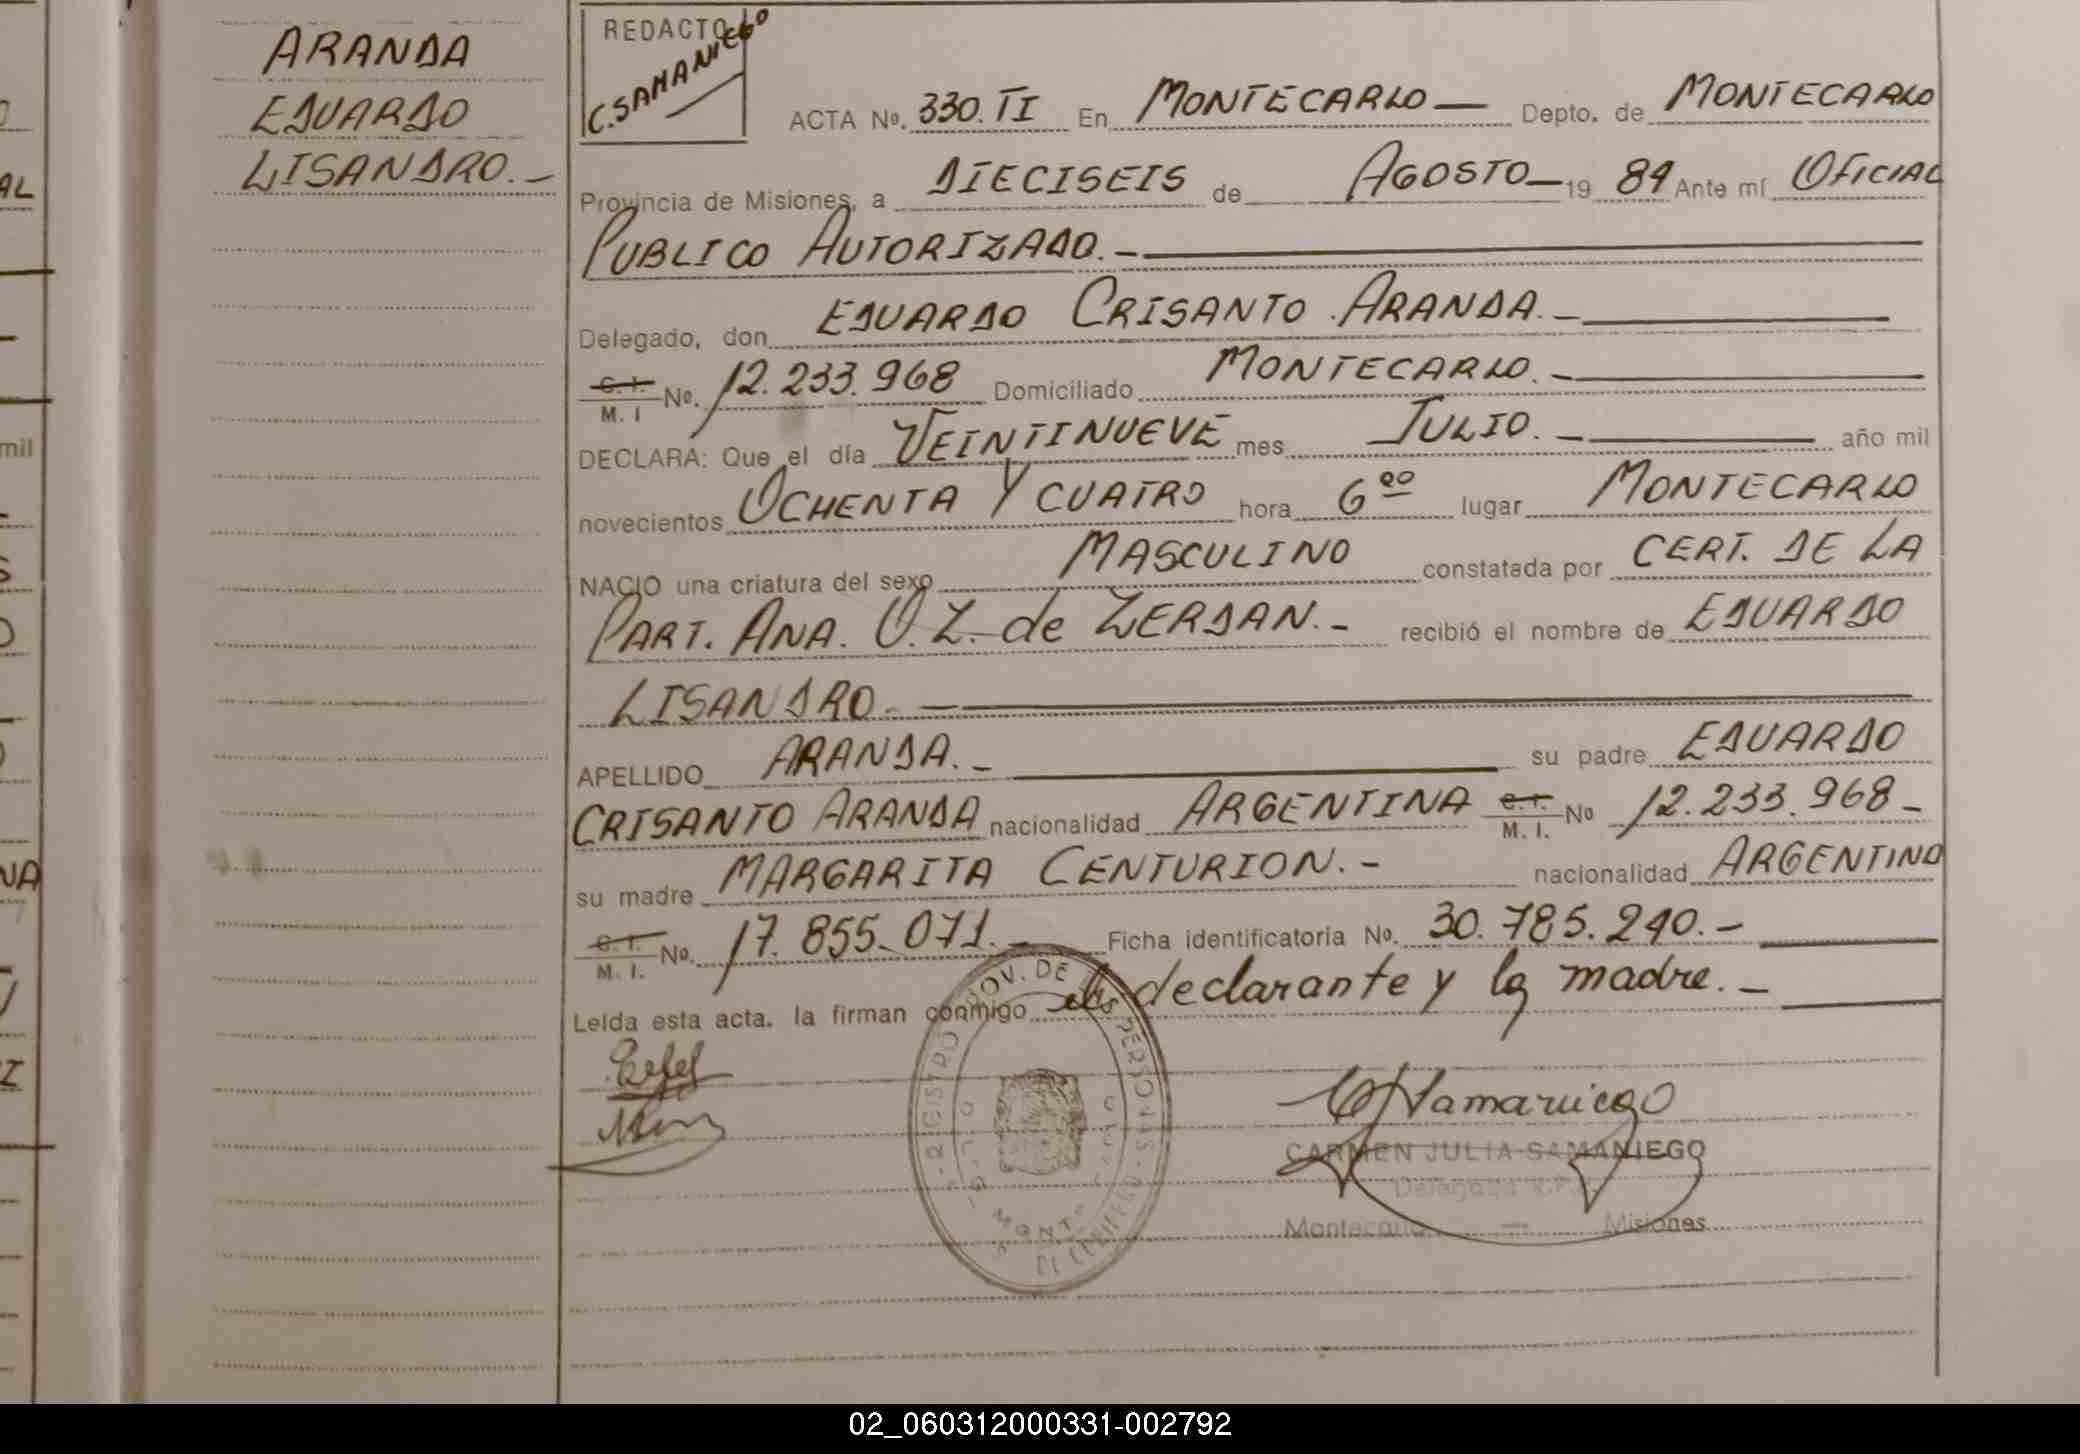 ARANDA
EDUARDO
LISANDRO.-
REDACTO
C.SAMANIEGO
ACTA No. 330.TI En MONTECARLO — Depto. de MONTECARLO
Provincia de Misiones, a DIECISEIS de AGOSTO — 19 84 Ante mí OFICIAL
PUBLICO AUTORIZADO.-
Delegado, don EDUARDO CRISANTO ARANDA.-
C. I.
M. I No. 12.233.968 Domiciliado MONTECARLO.-
DECLARA: Que el día VEINTINUEVE mes JULIO.- año mil
novecientos OCHENTA Y CUATRO hora 6 00 lugar MONTECARLO
NACIO una criatura del sexo MASCULINO constatada por CERT. DE LA
PART. ANA. O. Z. de ZERDAN.- recibió el nombre de EDUARDO
LISANDRO.-
APELLIDO ARANDA.- su padre EDUARDO
CRISANTO ARANDA nacionalidad ARGENTINA C. I.
M. I. No 12.233.968-
su madre MARGARITA CENTURION.- nacionalidad ARGENTINO
C. I.
M. I. No. 17.855.071.- Ficha identificatoria No. 30.785.240.-
Leída esta acta. la firman conmigo el declarante y la madre.-
CARMEN JULIA SAMANIEGO
Delegada R.P.
Montecarlo — Misiones
REGISTRO PROV. DE LAS PERSONAS
02_060312000331-002792